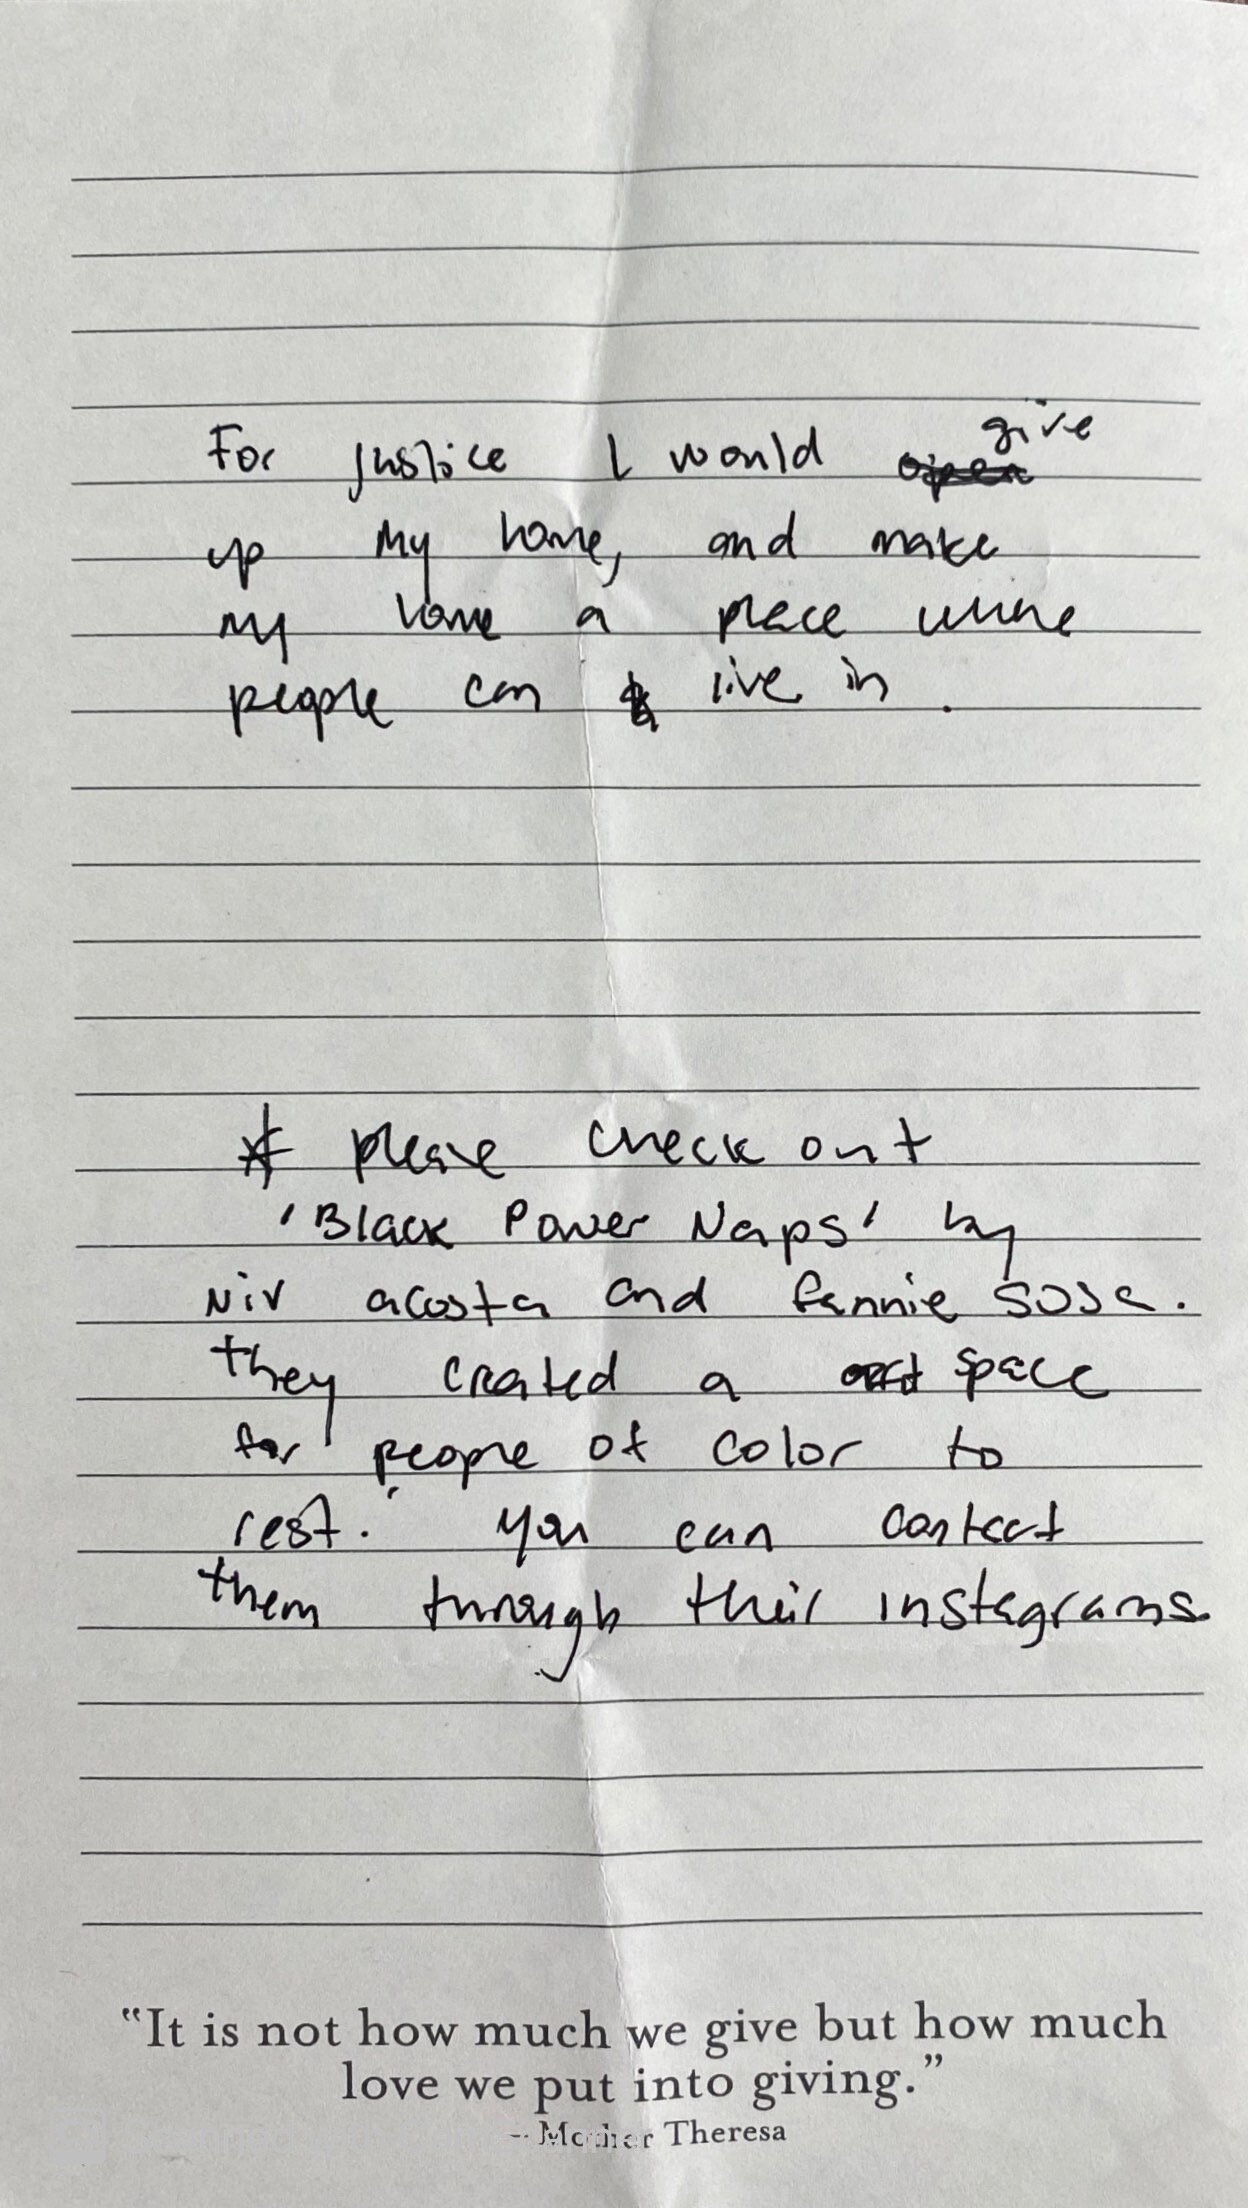 For justice I would give
up my home, and make
my home a place where
people can live in.
* please check out
'Black Power Naps' by
niv acosta and fannie sosa.
they created a space
for people of color to
rest. you can contact
them through their instagrams.
"It is not how much we give but how much
love we put into giving."
– Mother Theresa